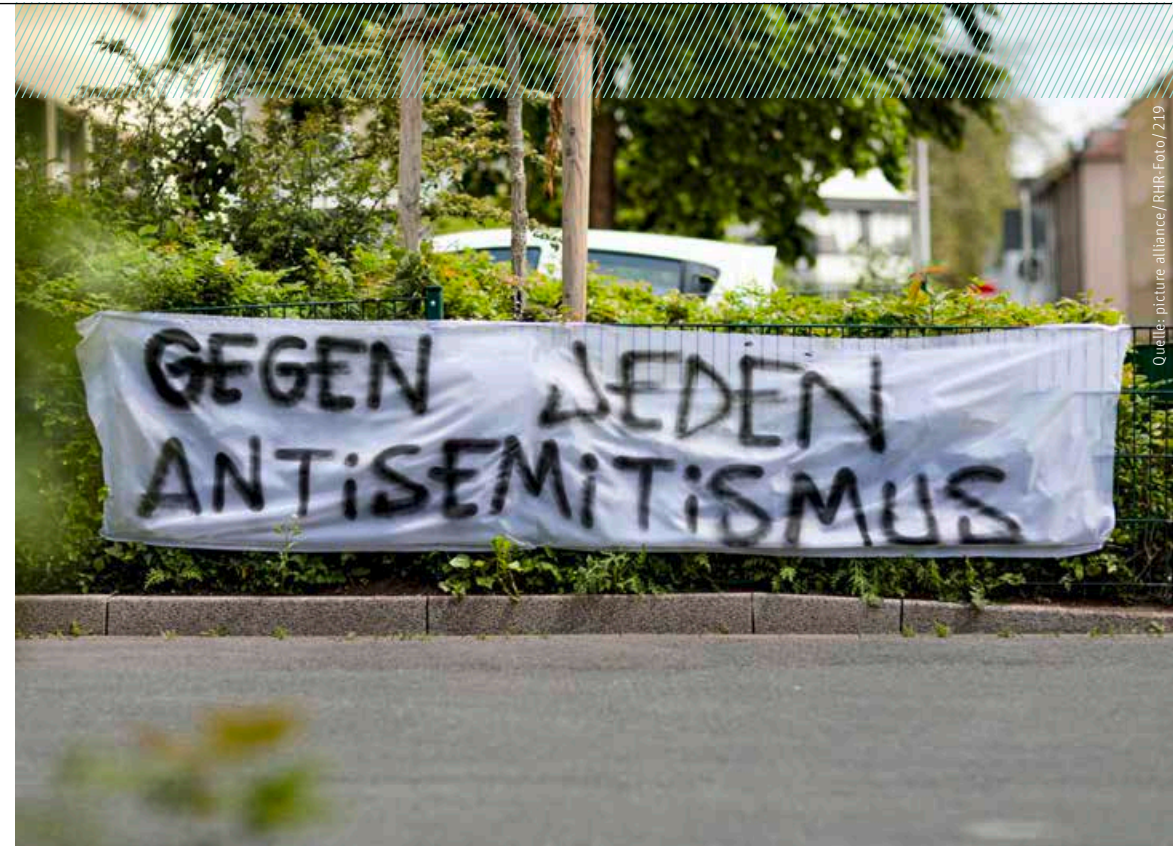 GEGEN JEDEN
ANTiSEMiTiSMUS
Quelle: picture alliance/RHR-Foto/219